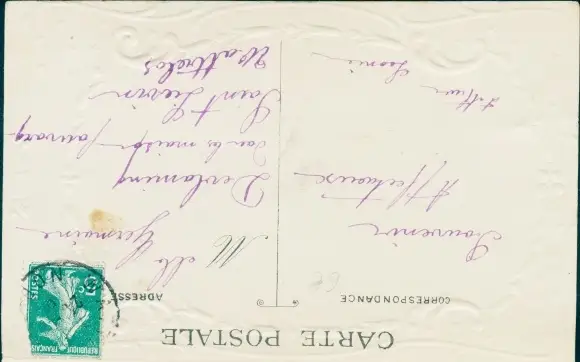 CARTE POSTALE
CORRESPONDANCE
ADRESSE
Souvenir
Affectueux
Leonie
Mlle
Germaine
Devlaminq
dans les maisons
Saint Lievin
Wattrelos
REPUBLIQUE
FRANÇAISE
POSTES